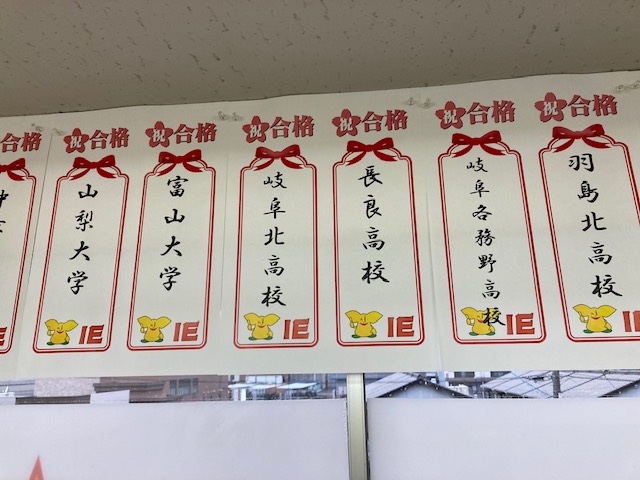 合格
祝合格
山梨大学
IE
祝合格
富山大学
IE
祝合格
岐阜北高校
IE
祝合格
長良高校
IE
祝合格
岐阜各務野高校
IE
祝合格
羽島北高校